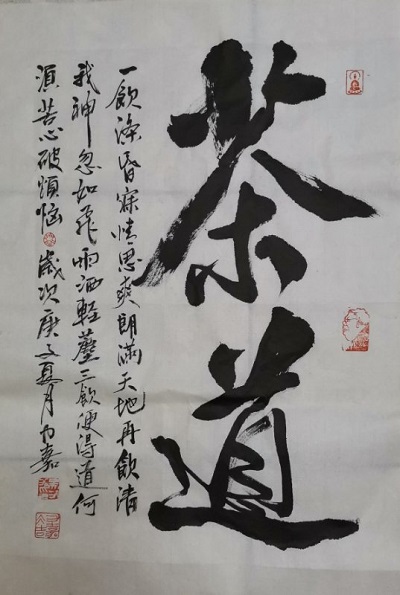 茶道
一飲滌昏寐情思爽朗滿天地再飲清
我神忽如飛雨洒輕塵三飲便得道何
須苦心破煩惱歲次庚子夏月 嘉